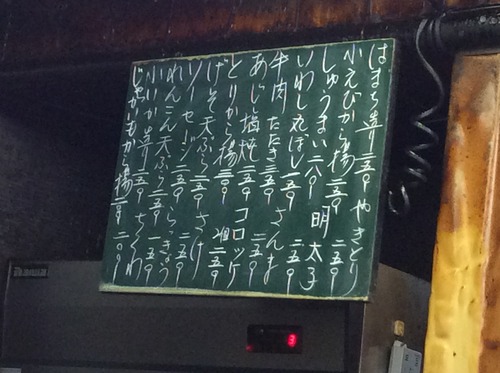 はまち造り 三五〇 やきとり
小えびから揚 二五〇 二五〇
しゅうまい 二八〇 明太子
いわし丸ぼし 一五〇 二五〇
牛肉たたき 三五〇 さんま
あじ塩焼 二五〇
とりから揚 三〇〇 コロッケ
げそ天ぷら 二五〇 二五〇
ソーセージ 二五〇 さけ
れんこん天ぷら 二五〇 らっきょう
小いか造り 二五〇 一五〇 ちくわ
じゃがいもから揚 二〇〇 二〇〇
3